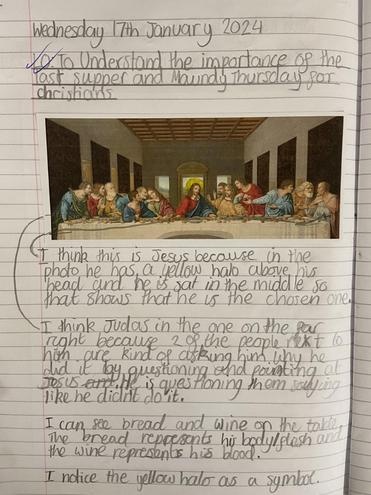 Wednesday 17th January 2024
LO: To Understand the importance of the
last supper and Maundy Thursday for
christians
I think this is Jesus because in the
photo he has a yellow halo above his
head and he is sat in the middle so
that shows that he is the chosen one.
I think Judas in the one on the far
right because 2 of the people next to
him are kind of asking him why he
did it by questioning and pointing at
Jesus and He is questioning them saying
like he didnt do it.
I can see bread and wine on the table.
The bread represents his body/flesh and
the wine represents his blood.
I notice the yellow halo as a symbol.